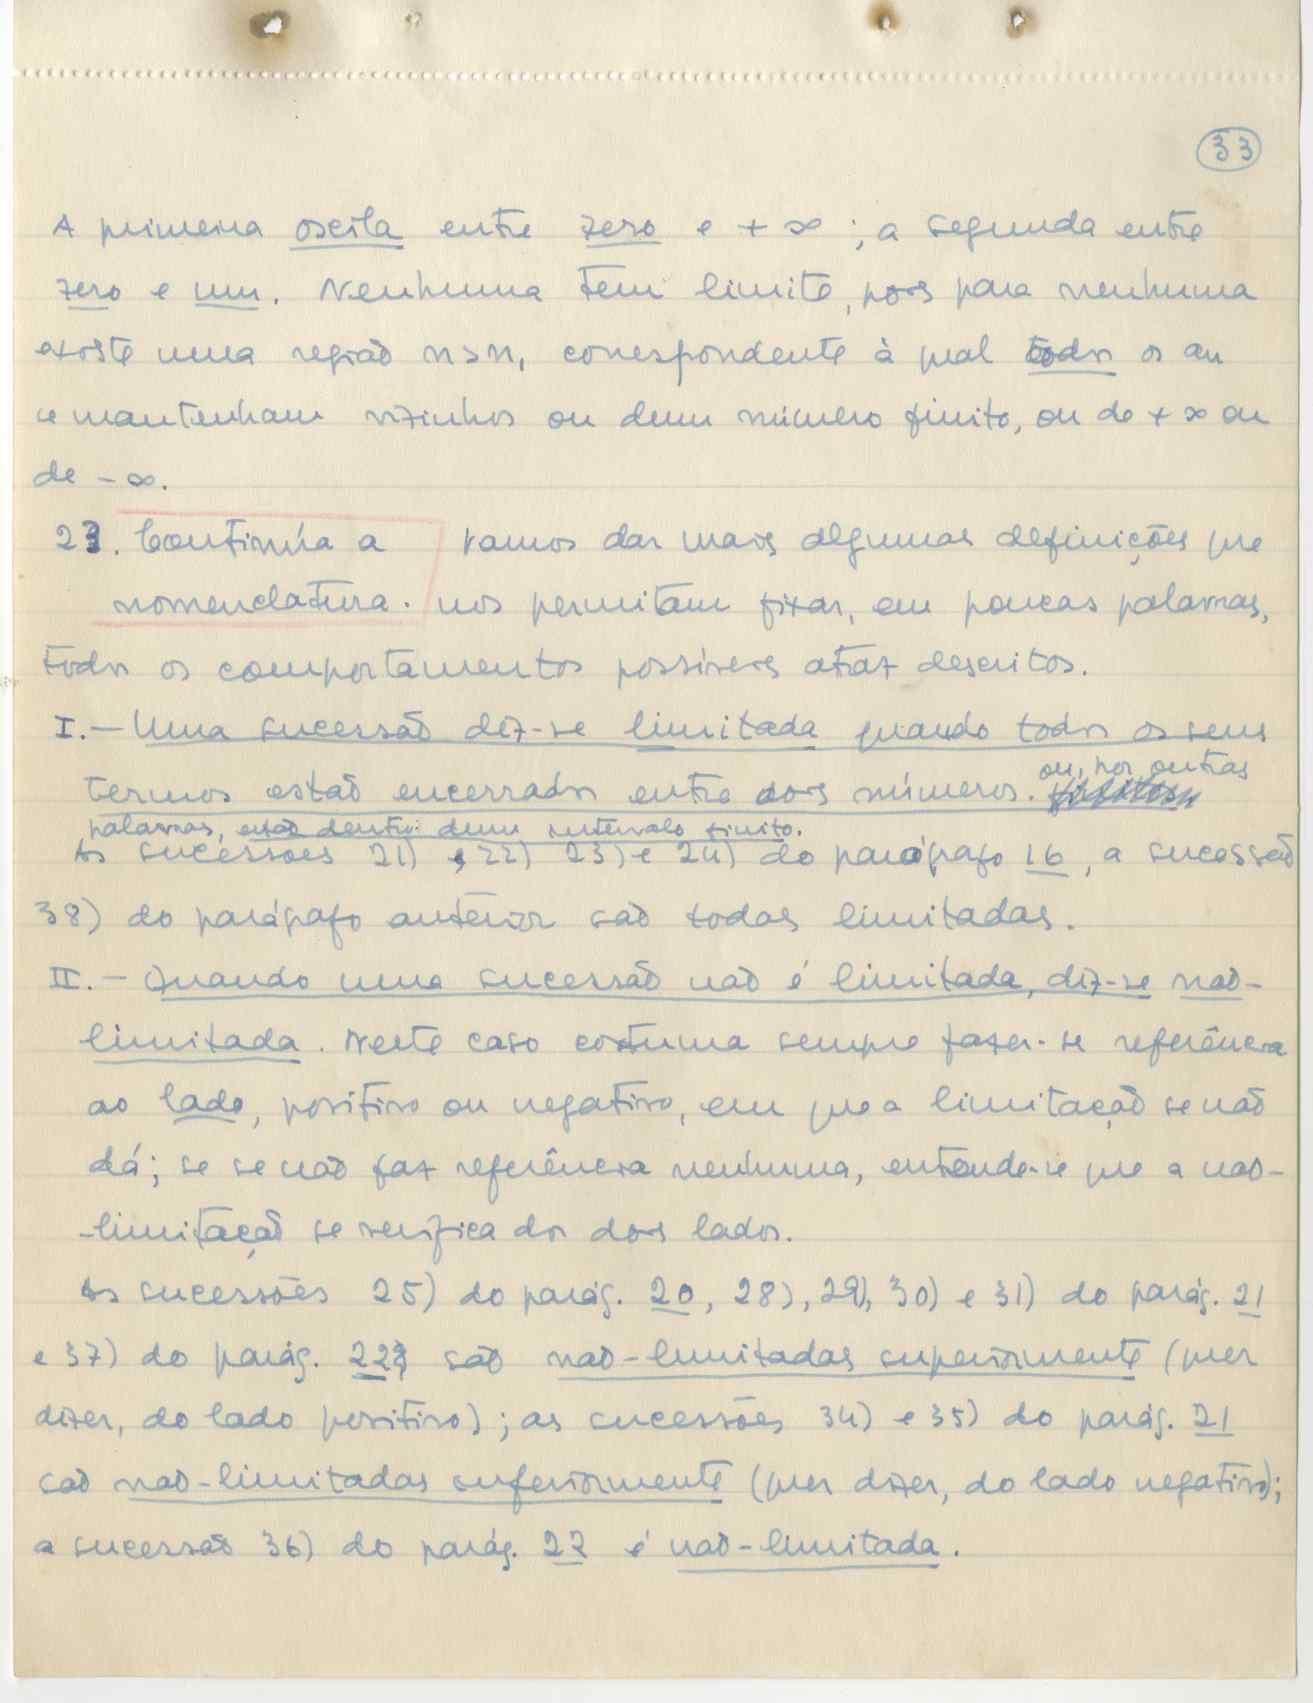 33
A primeira oscila entre zero e + ∞ ; a segunda entre
zero e um. Nenhuma tem limite, pois para nenhuma
existe uma região n>n₁ correspondente à qual todos os an
se mantenham vizinhos ou dum número finito, ou de + ∞ ou
de - ∞.
23. Continúa a nomenclatura. Vamos dar mais algumas definições que
nos permitam fixar, em poucas palavras,
todos os comportamentos possíveis atraz descritos.
I. — Uma sucessão diz-se limitada quando todos os seus
termos estão encerrados entre dois números. ou, por outras
palavras, estão dentro dum intervalo finito.
As sucessões 21) 22) 23) e 24) do parágrafo 16, a sucessão
38) do parágrafo anterior são todas limitadas.
II. — Quando uma sucessão não é limitada, diz-se não-
limitada. Neste caso costuma sempre fazer-se referência
ao lado, positivo ou negativo, em que a limitação se não
dá; se se não faz referência nenhuma, entende-se que a não-
-limitação se verifica dos dois lados.
As sucessões 25) do parág. 20, 28), 29), 30) e 31) do parág. 21
e 37) do parág. 22 são não-limitadas superiormente (quer
dizer, do lado positivo); as sucessões 34) e 35) do parág. 21
são não-limitadas inferiormente (quer dizer, do lado negativo);
a sucessão 36) do parág. 22 é não-limitada.